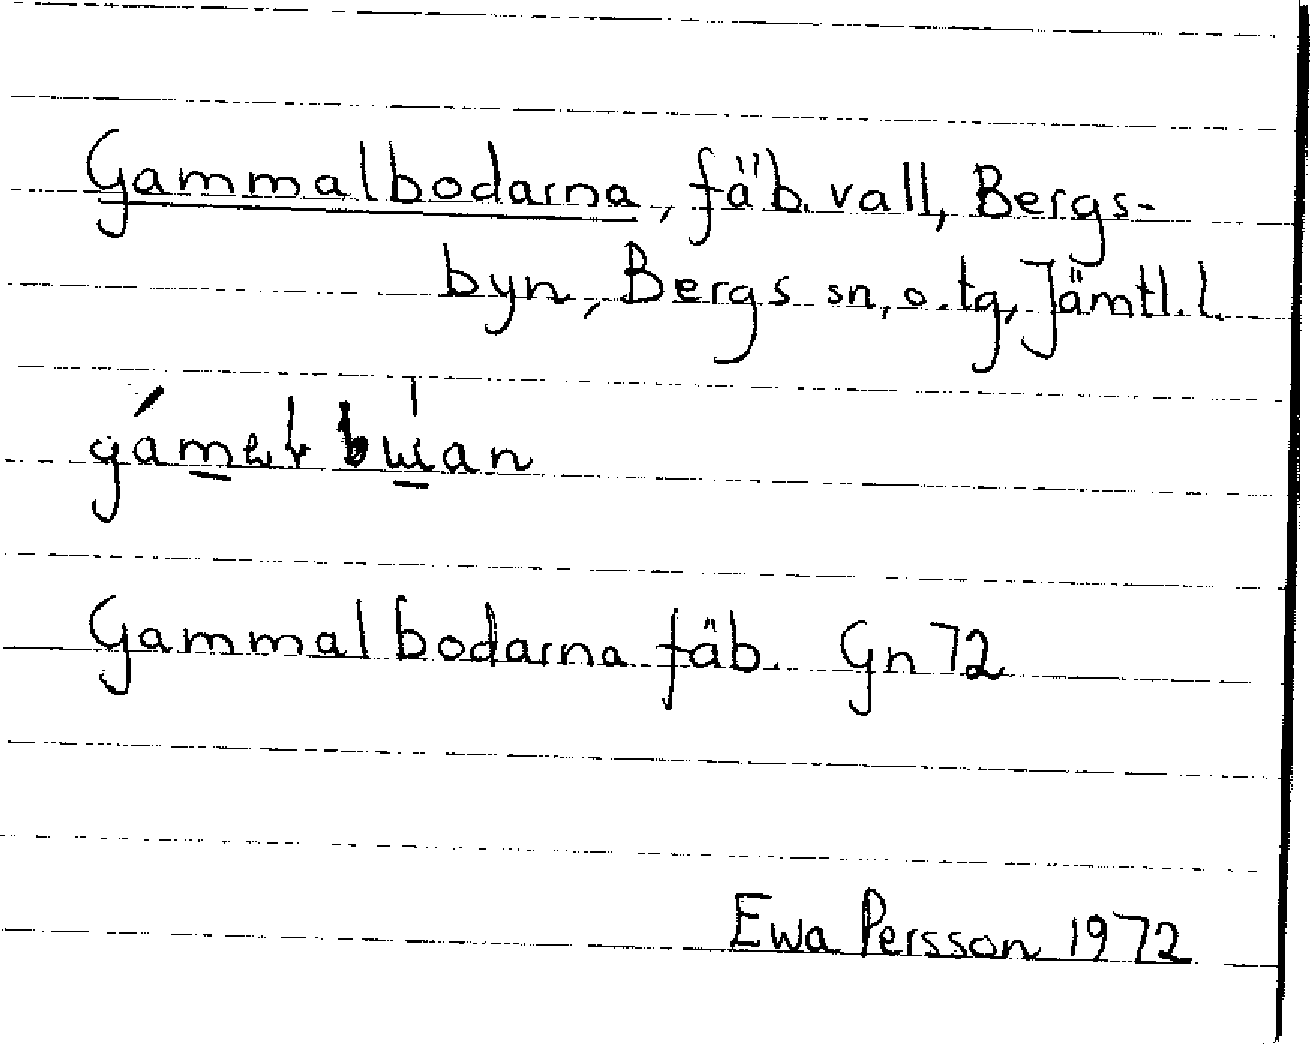 Gammalbodarna, fäb.vall, Bergs-
byn, Bergs sn, o. tg, Jämtl. l.
Gammalbodarna fäb. Gn 72
Ewa Persson 1972